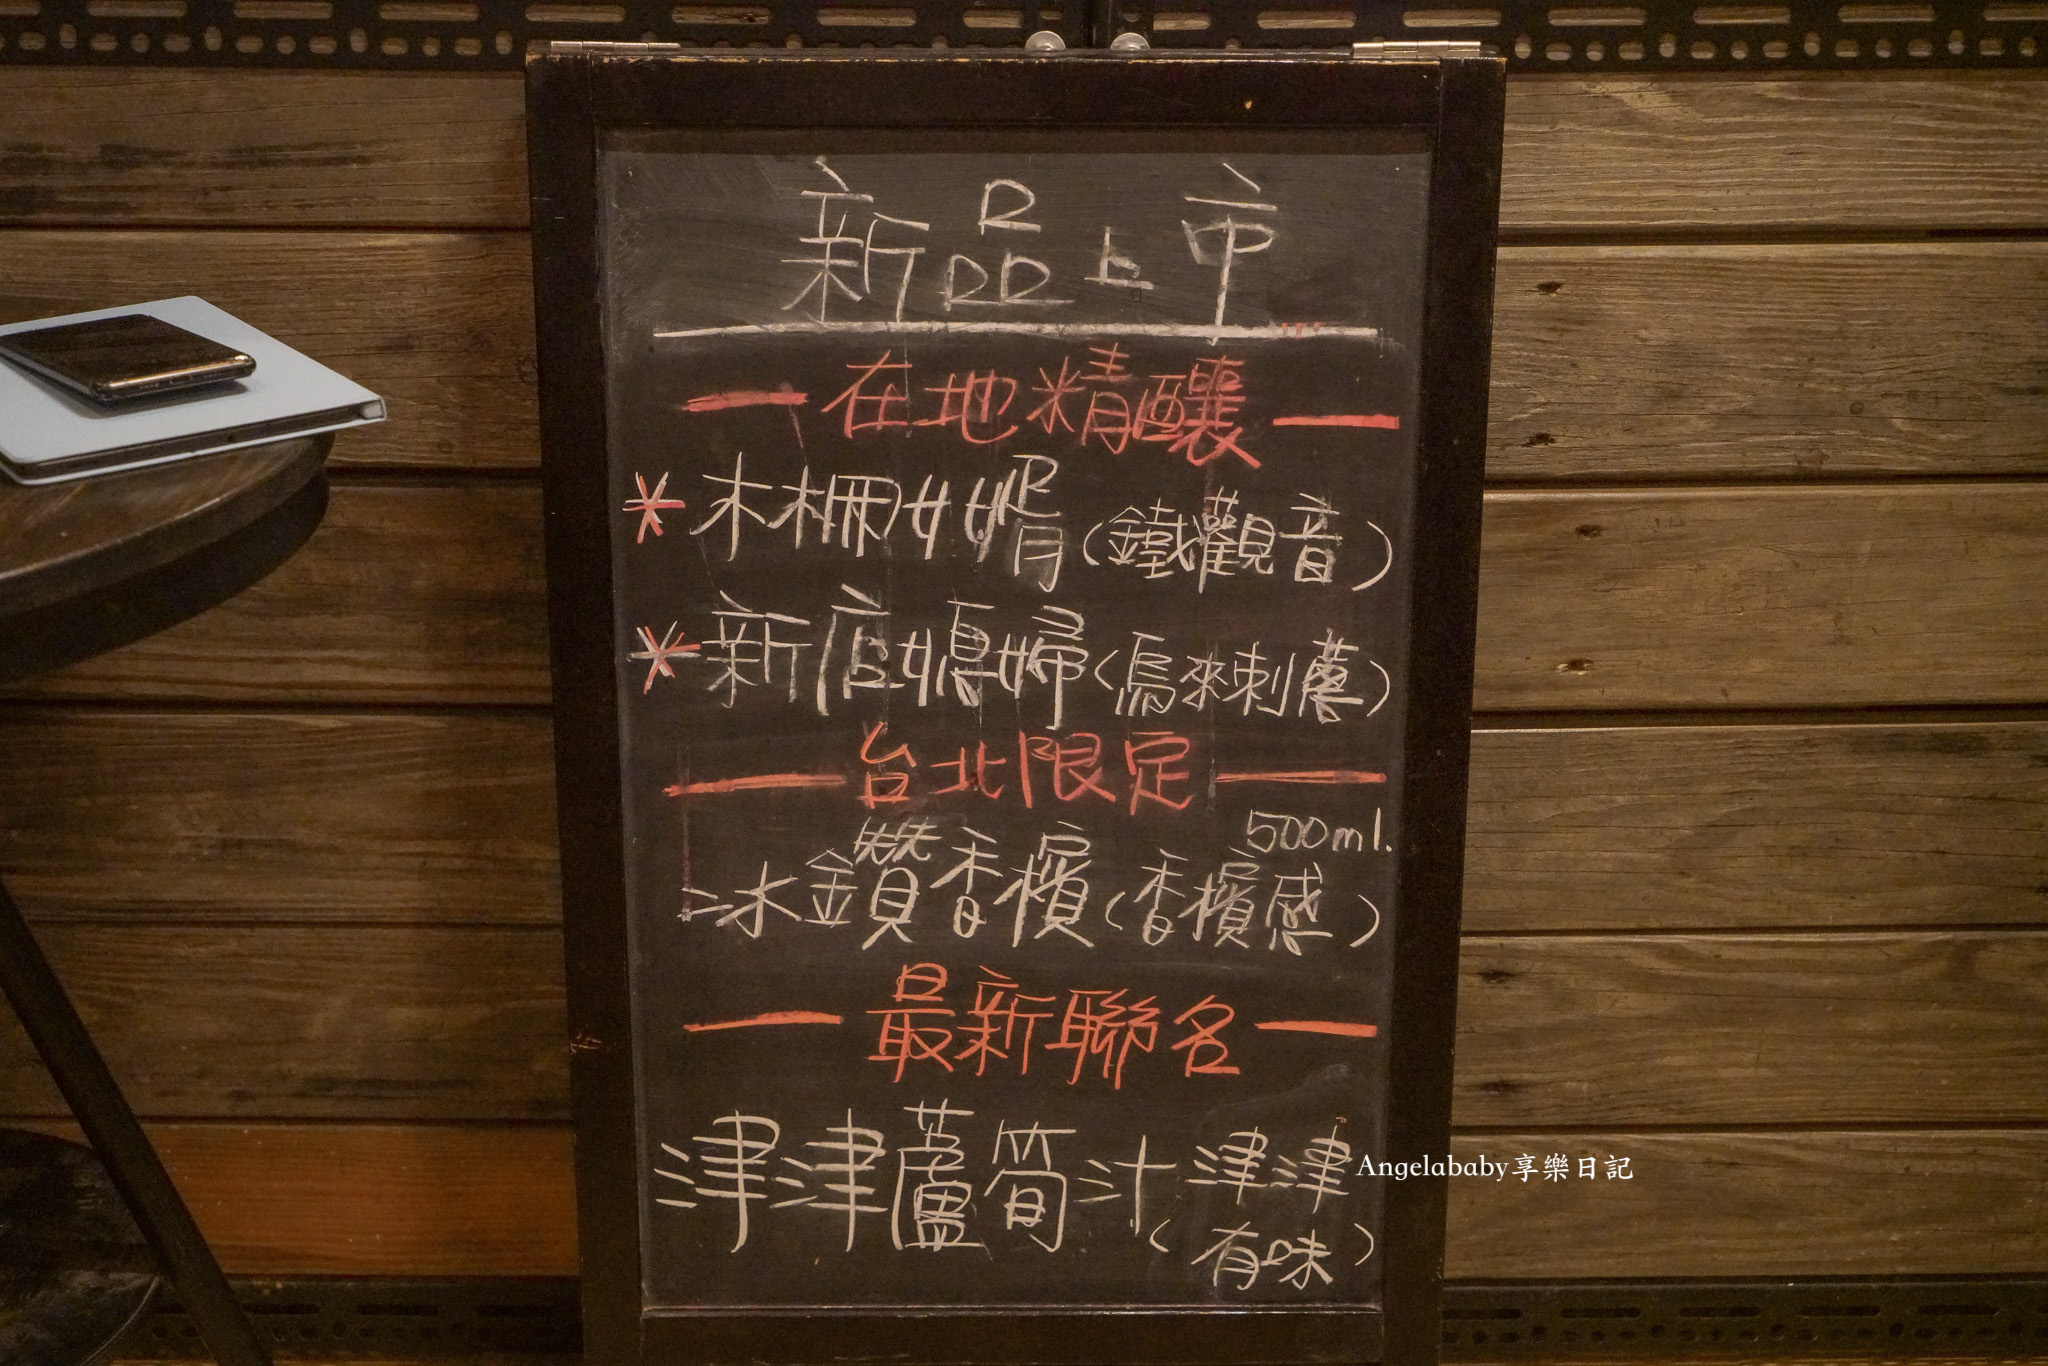 新品上市
在地精釀
*木柵女婿(鐵觀音)
*新店媳婦(烏來刺蔥)
台北限定
500ml.
冰鑽香檳(香檳感)
最新聯名
津津蘆筍汁(津津
有味)
Angelababy享樂日記